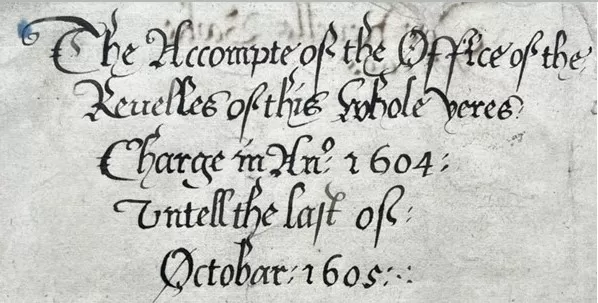 The Accompte of the Office of the
Reuelles of this whole yeres
Charge in Ano: 1604:
Vntell the last of:
Octobar: 1605: